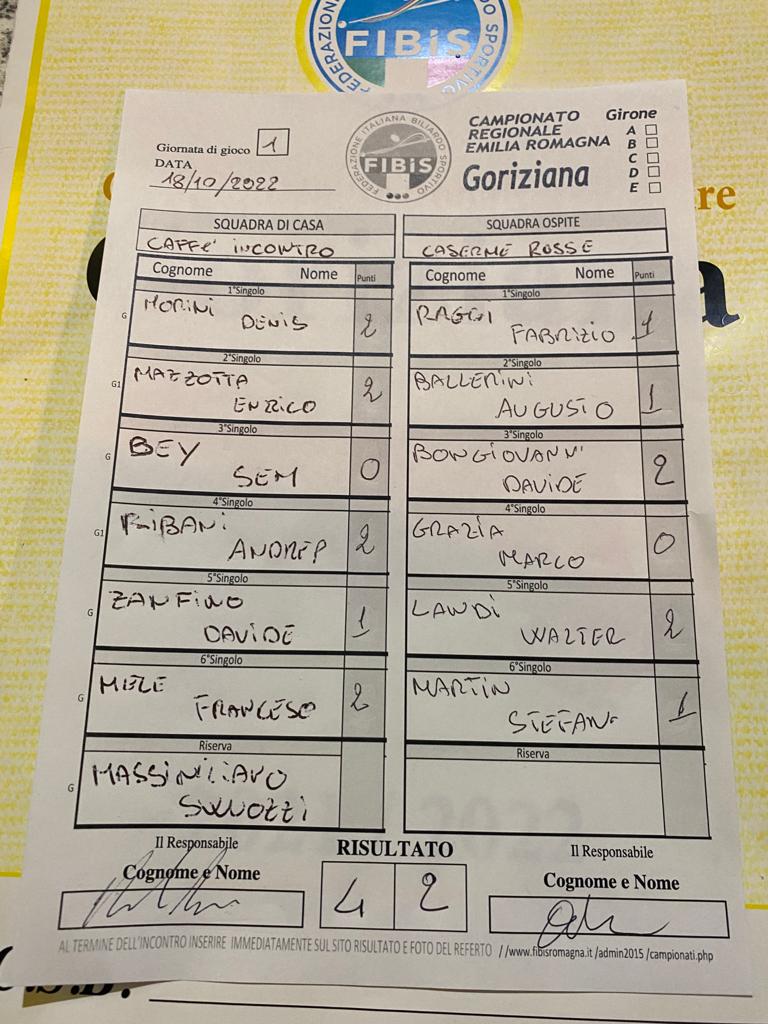 FEDERAZIONE
FIBiS
SPORTIVO
Giornata di gioco 1
DATA
18/10/2022
FEDERAZIONE ITALIANA BILIARDO SPORTIVO
FIBiS
CAMPIONATO
REGIONALE
EMILIA ROMAGNA
Goriziana
Girone
A
B
C
D
E
re
a
SQUADRA DI CASA
SQUADRA OSPITE
CAFFE' INCONTRO
CASERME ROSSE
Cognome Nome Punti
Cognome Nome Punti
1°Singolo
1°Singolo
G MORINI DENIS 2
RAGGI FABRIZIO 1
2°Singolo
2°Singolo
G1 MAZZOTTA ENRICO 2
BALLERINI AUGUSTO 1
3°Singolo
3°Singolo
G BEY SEM 0
BONGIOVANNI DAVIDE 2
4°Singolo
4°Singolo
G1 ANDREA 2
GRAZIA MARCO 0
5°Singolo
5°Singolo
G ZANFINO DAVIDE 1
LANDI WALTER 2
6°Singolo
6°Singolo
G MELE FRANCESO 2
MARTIN STEFANO 1
Riserva
Riserva
G MASSIMILIANO
Il Responsabile
RISULTATO
Il Responsabile
Cognome e Nome
Cognome e Nome
4 2
AL TERMINE DELL'INCONTRO INSERIRE IMMEDIATAMENTE SUL SITO RISULTATO E FOTO DEL REFERTO //www.fibisromagna.it /admin2015 /campionati.php